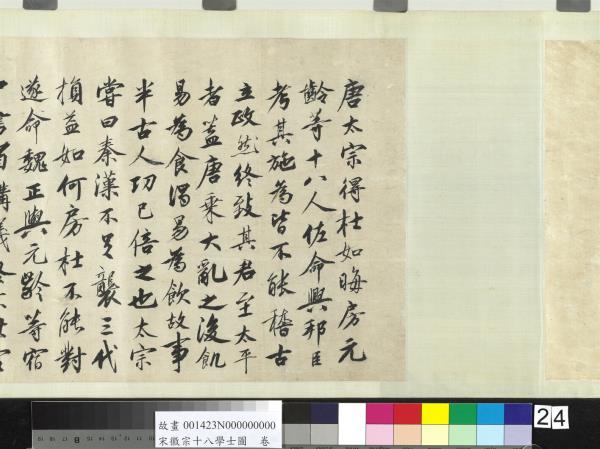 唐太宗得杜如晦房元
齡等十八人佐命興邦臣
考其施為皆不能稽古
立政然終致其君至太平
者蓋唐乘大亂之後飢
易為食渴易為飲故事
半古人功已倍之也太宗
嘗曰秦漢不足襲三代
損益如何房杜不能對
遂命魏正與元齡等宿
中書省講議
故畫 001423N000000000
宋徽宗十八學士圖 卷
24